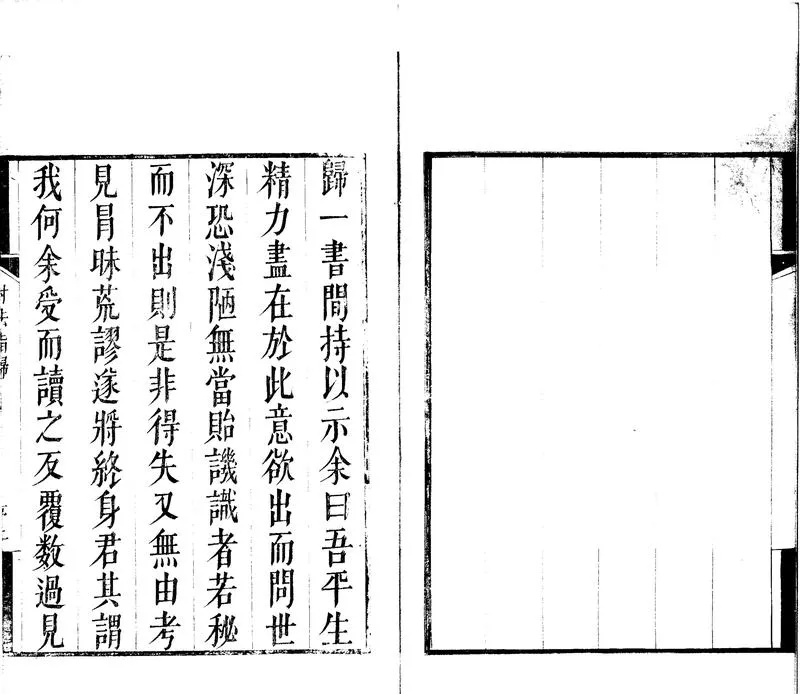 歸一書間持以示余曰吾平生
精力盡在於此意欲出而問世
深恐淺陋無當貽譏識者若秘
而不出則是非得失又無由考
見冐昧荒謬遂將終身君其謂
我何余受而讀之反覆數過見